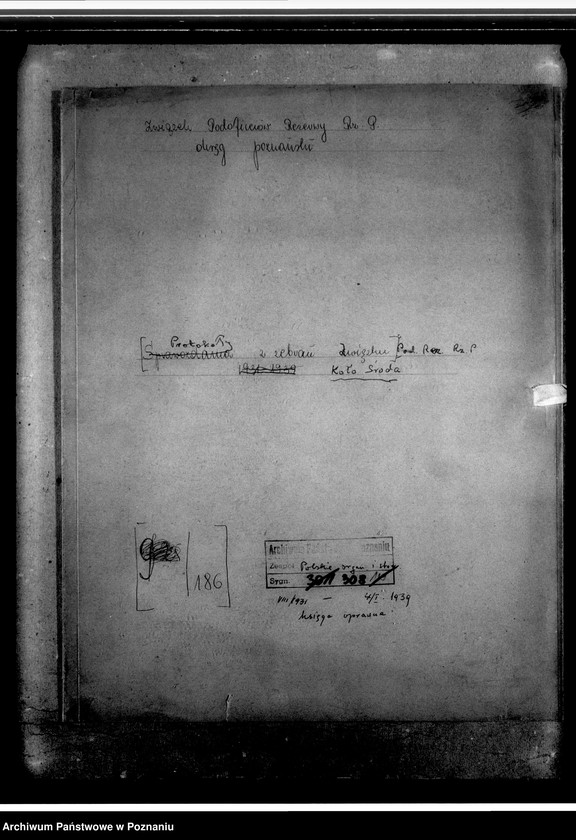 Związek Podoficerów Rezerwy Rz. P.
okręg poznański
Protokoły
[Sprawozdania z zebrań Związku] Pod. Rez. Rz. P
1931-1939 Koło Środa
186
Archiwum Państwowe w Poznaniu
Zespół Polskie organ. i stow
Sygn. 308
VIII/931 — 4/I 1939
księga oprawna
Archiwum Państwowe w Poznaniu